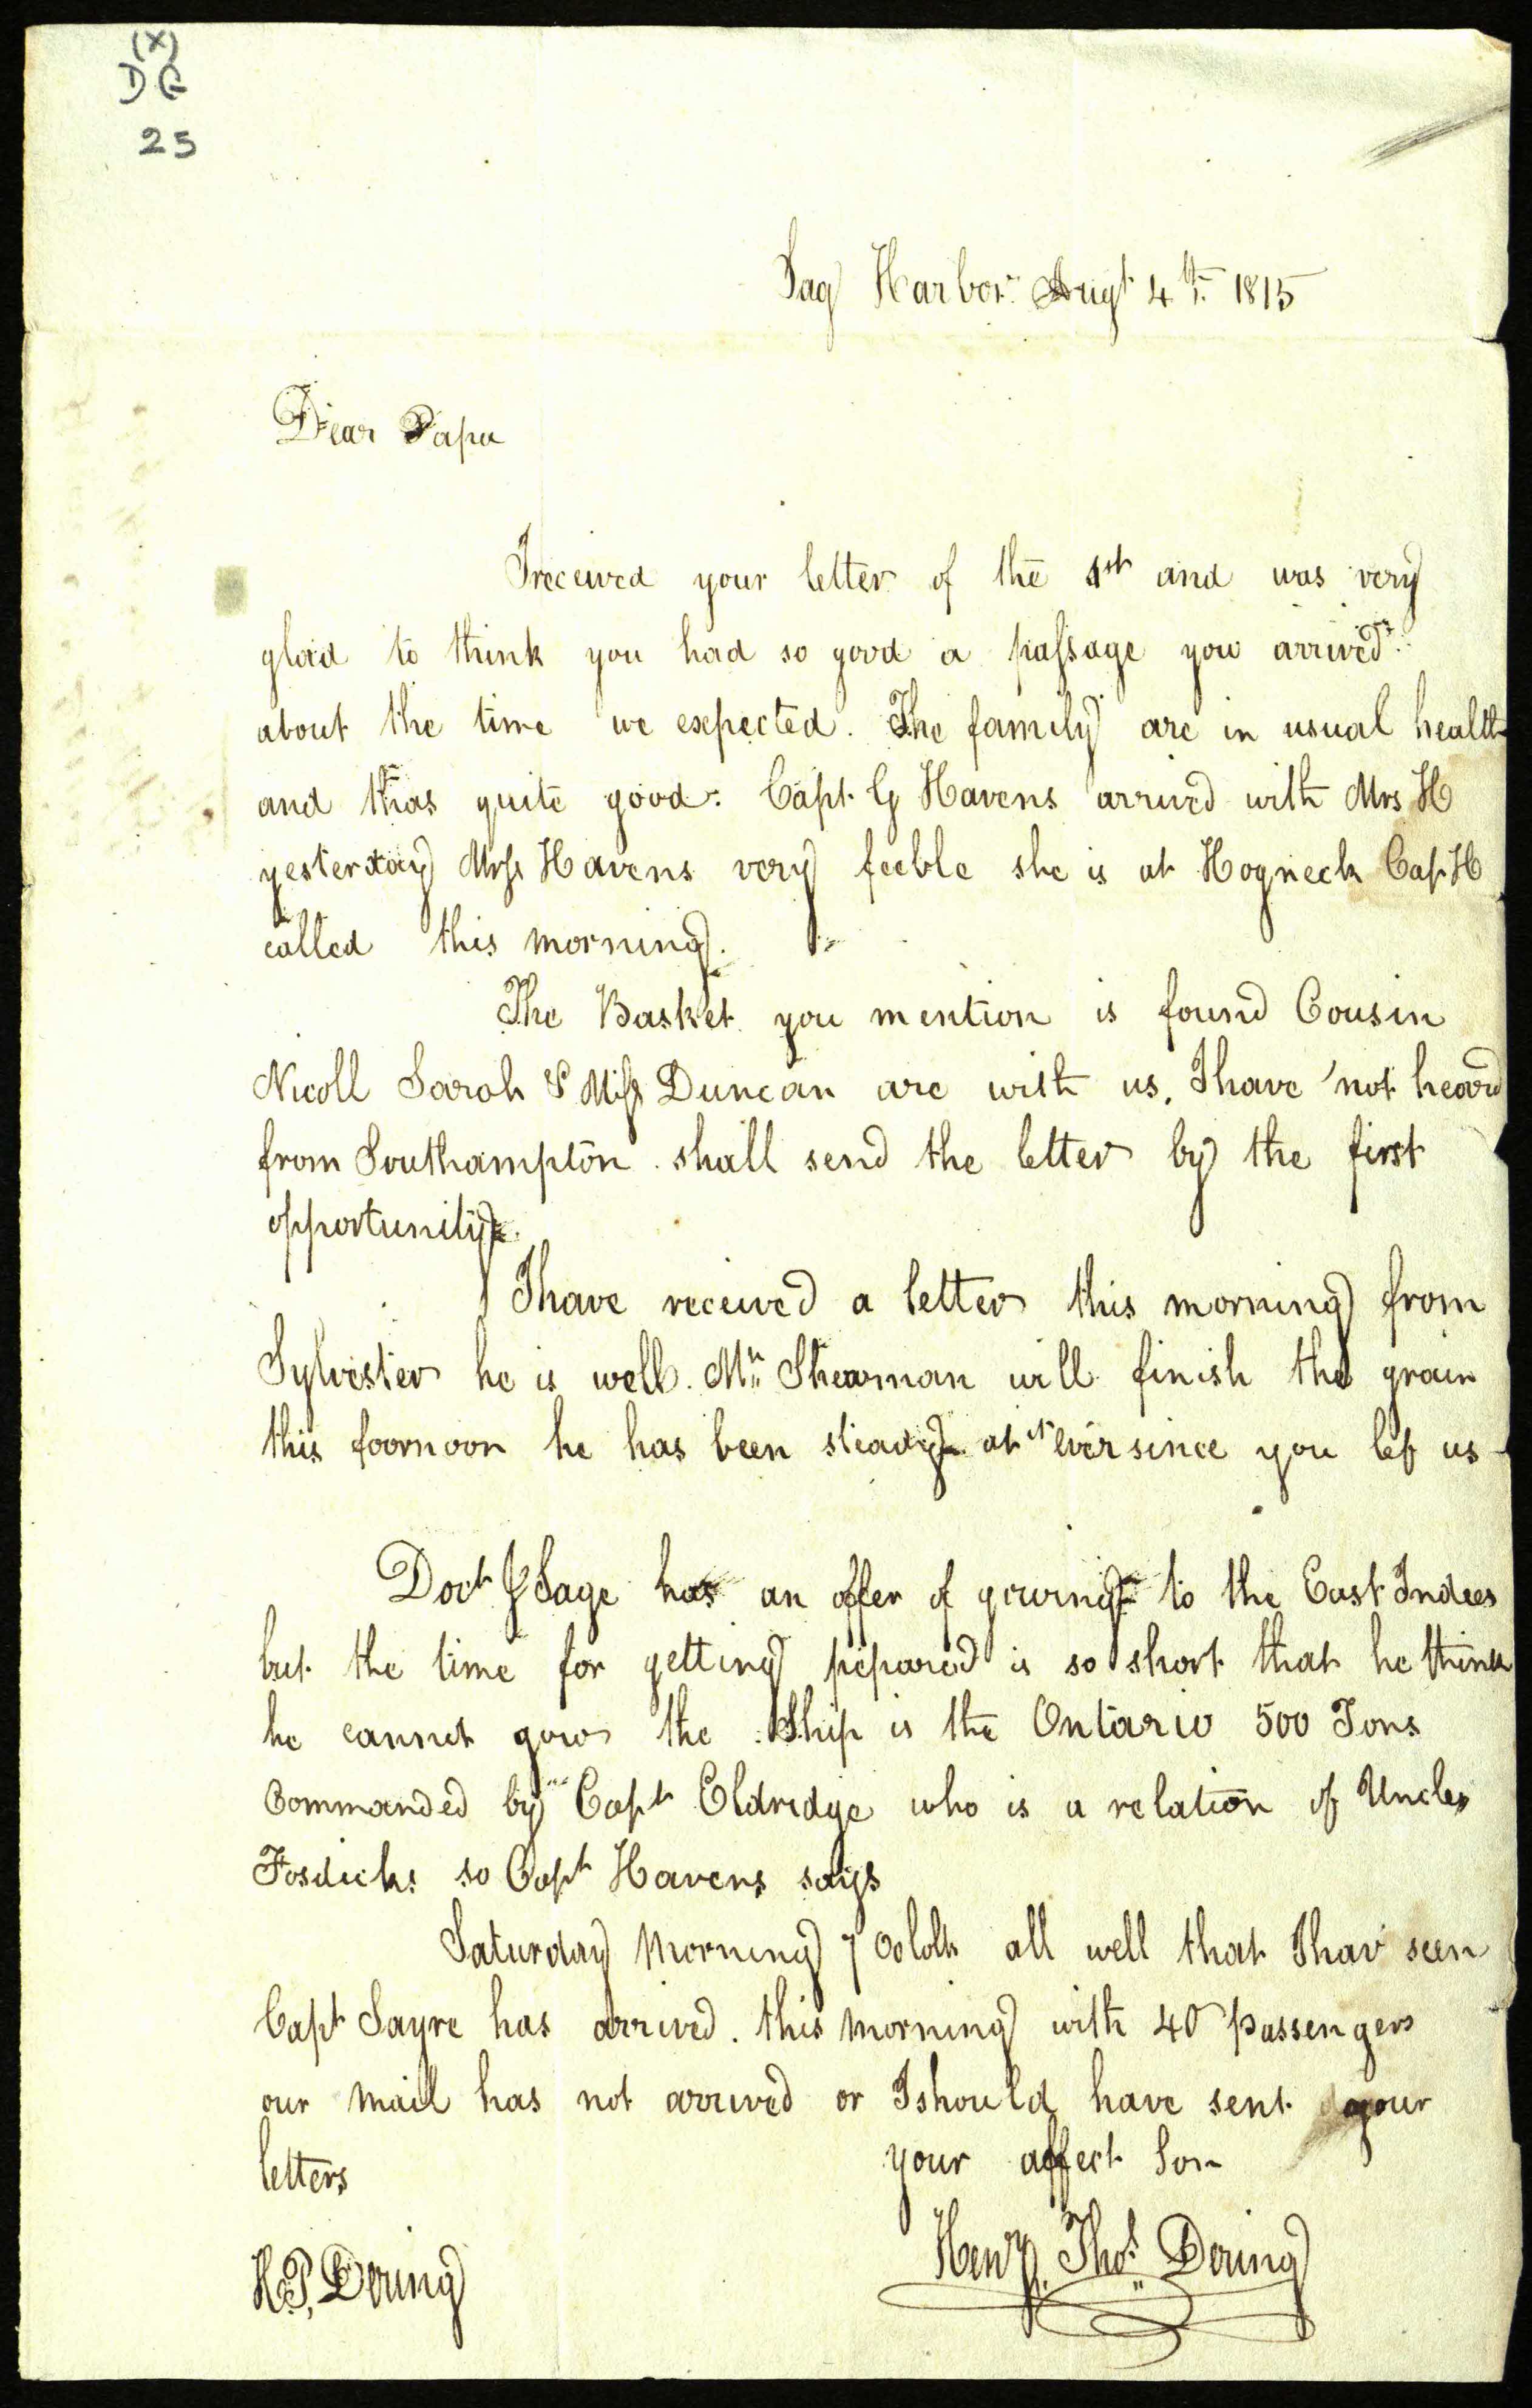 (X)
D G
25
Sag Harbor Augt 4th. 1815
Dear Papa
I received your letter of the 1st and was very
glad to think you had so good a passage you arrived
about the time we expected. The family are in usual health
and thas quite good. Capt. G Havens arrived with Mrs H
yesterday Mrs Havens very feeble she is at Hogneck Cap. H
called this morning.
The Basket you mention is found Cousin
Nicoll Sarah & Miss Duncan are with us. I have not heard
from Southampton shall send the letter by the first
opportunity
I have received a letter this morning from
Sylvester he is well. Mr. Shearman will finish the grain
this foornoon he has been steady at it ever since you lef us
Doct J Sage has an offer of gowing to the East Indees
but the time for getting pepared is so short that he think
he cannot gow the Ship is the Ontario 500 Tons
Commanded by Capt Eldridge who is a relation of Uncles
Fosdicks so Capt Havens says
Saturday Morning 7 Oclolk all well that I hav seen
Capt Sayre has arrived. this Morning with 40 passengers
our Mail has not arrived or I should have sent your
letters
your affect Son
Henry Thos. Dering
H.P. Dering